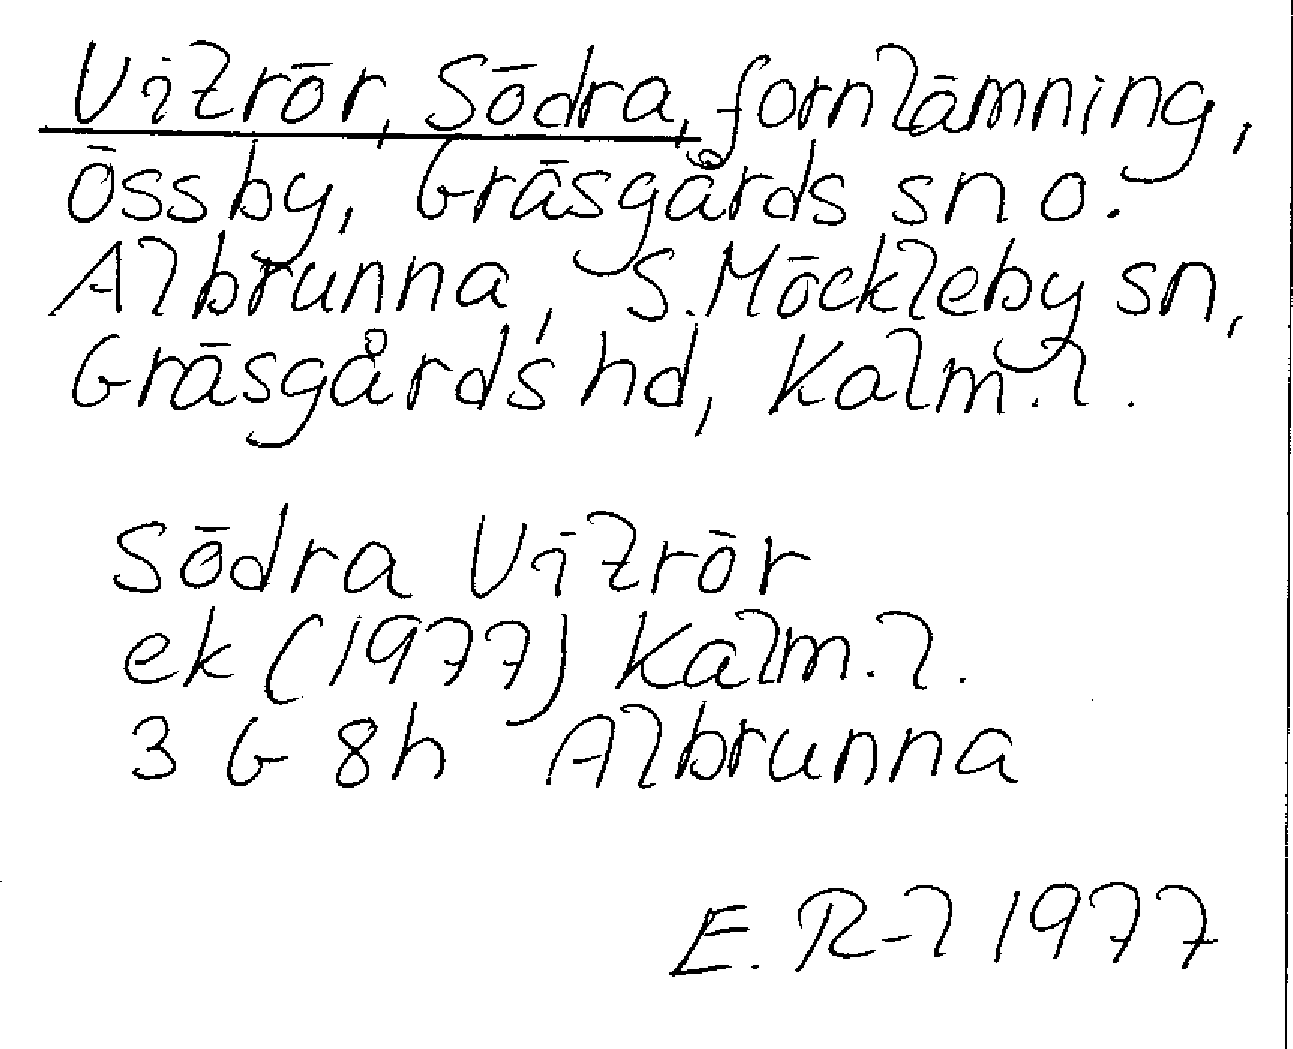 Vilrör, Södra, fornlämning,
Össby, Gräsgårds sn o.
Albrunna, S. Möckleby sn,
Gräsgårds hd, Kalm. l.
Södra Vilrör
ek (1977) Kalm. l.
3 G 8h Albrunna
E. R-l 1977